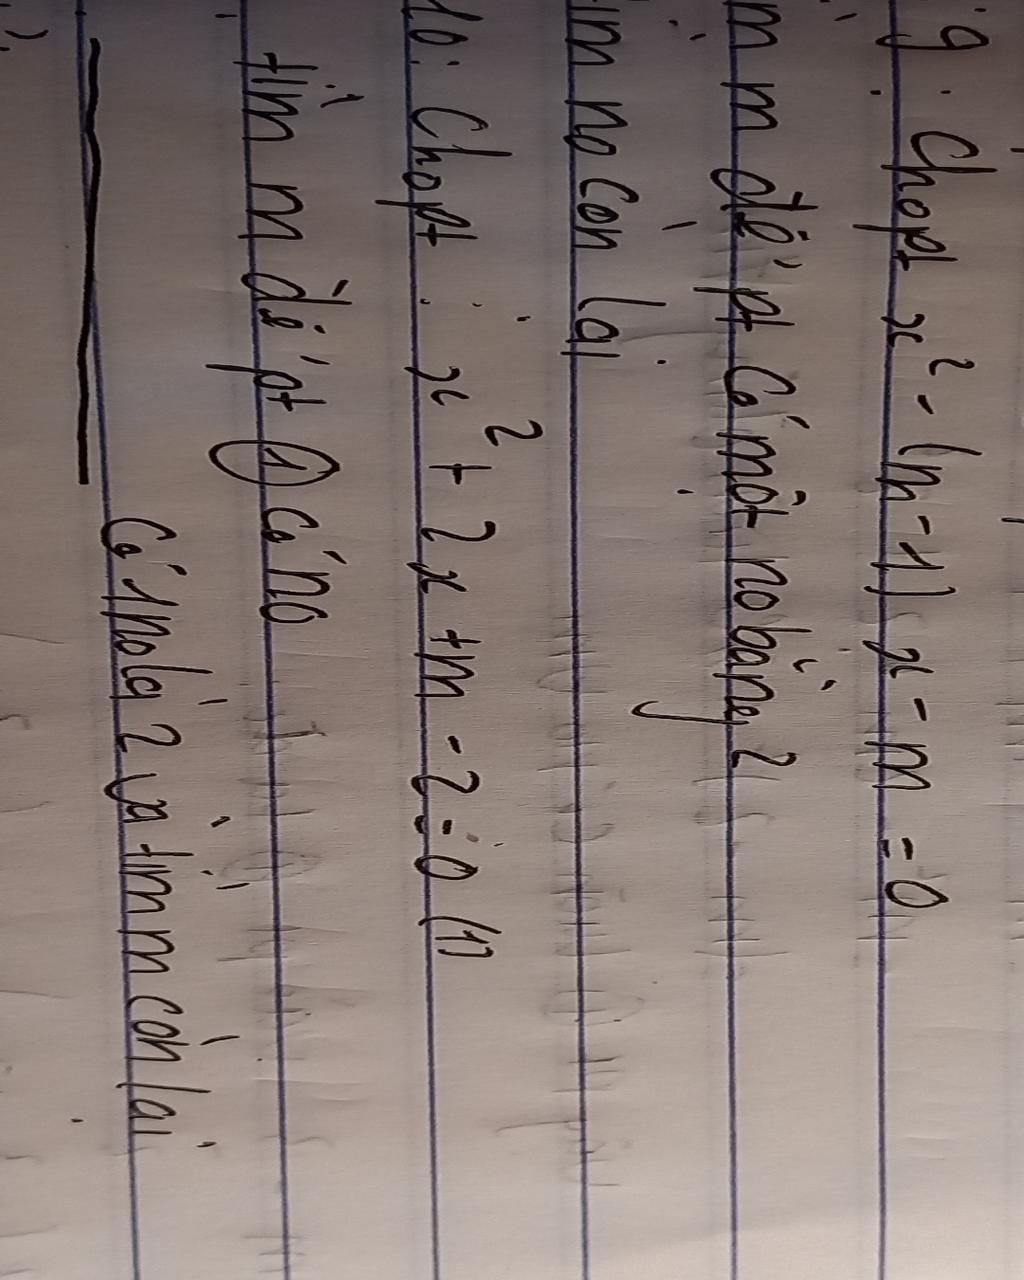 9. Cho pt x² - (m - 1) x - m = 0
m m để pt có một no bằng 2
ìm no còn lại
10: Cho pt : x² + 2x + m - 2 = 0 (1)
tìm m để pt ① có no
có 1 no là 2 và tìm m còn lại